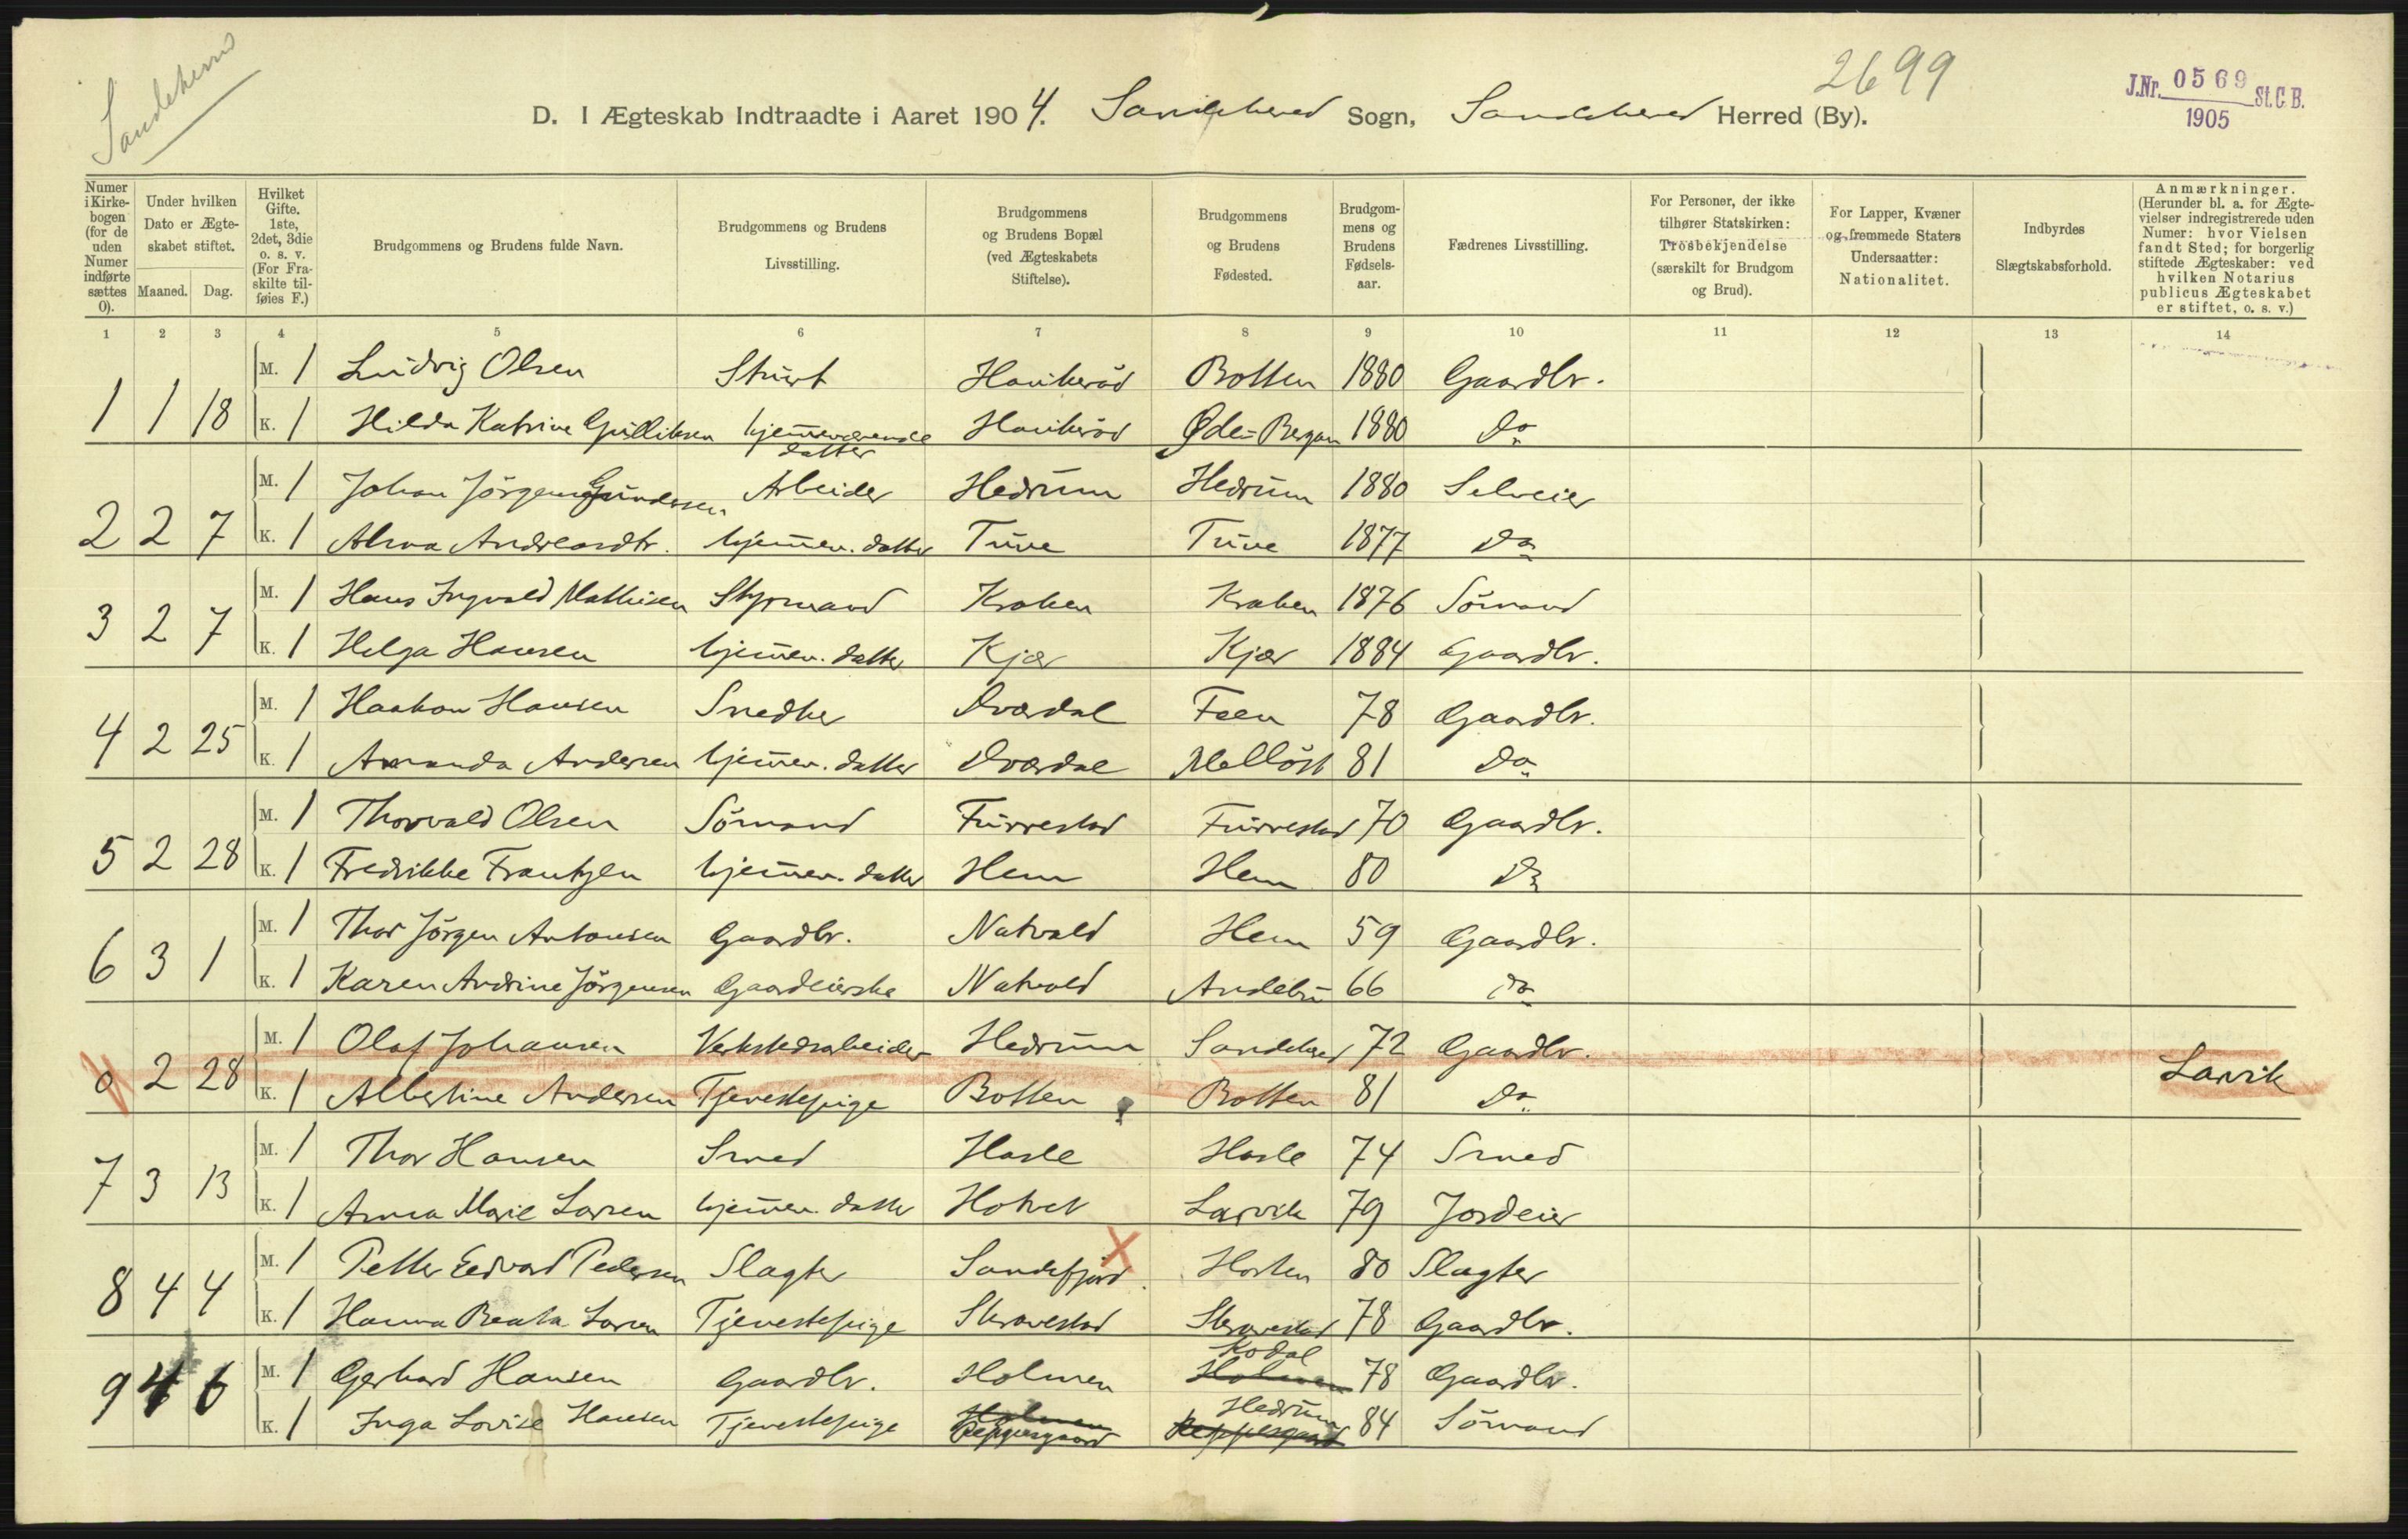 Sandeherred
2699
J.Nr. 0569 St.C.B.
1905
D. I Ægteskab Indtraadte i Aaret 1904. Sandeherred Sogn, Sandeherred Herred (By).
Numer i Kirkebogen (for de uden Numer indførte sættes 0).
Under hvilken Dato er Ægteskabet stiftet.
Maaned. Dag.
Hvilket Gifte. 1ste, 2det, 3die o. s. v. (For Fraskilte tilføies F.)
Brudgommens og Brudens fulde Navn.
Brudgommens og Brudens Livsstilling.
Brudgommens og Brudens Bopæl (ved Ægteskabets Stiftelse).
Brudgommens og Brudens Fødested.
Brudgommens og Brudens Fødselsaar.
Fædrenes Livsstilling.
For Personer, der ikke tilhører Statskirken: Trosbekjendelse (særskilt for Brudgom og Brud).
For Lapper, Kvæner og fremmede Staters Undersaatter: Nationalitet.
Indbyrdes Slægtskabsforhold.
Anmærkninger. (Herunder bl. a. for Ægtevielser indregistrerede uden Numer: hvor Vielsen fandt Sted; for borgerlig stiftede Ægteskaber: ved hvilken Notarius publicus Ægteskabet er stiftet, o. s. v.)
1 2 3 4 5 6 7 8 9 10 11 12 13 14
M. 1 Ludvig Olsen Haukerød Botten 1880 Gaardbr.
1 1 18 K. 1 Hilda Katrine Gulliksen hjemmeværende datter Haukerød Øde-Bergan 1880 Do
M. 1 Johan Jörgen Gundersen Arbeider Hedrum Hedrum 1880 Selveier
2 2 7 K. 1 Alma Andreasdtr. hjemmev. datter Tuve Tuve 1877 Do
M. 1 Hans Ingvald Mathisen Styrmand Kraken Kraken 1876 Sömand
3 2 7 K. 1 Helga Hansen hjemmev. datter Kjær Kjær 1884 Gaardbr.
M. 1 Haakon Hansen Snedker Dværdal Feen 78 Gaardbr.
4 2 25 K. 1 Amanda Andersen hjemmev. datter Dværdal Melløst 81 Do
M. 1 Thorvald Olsen Sömand Furrestad Furrestad 70 Gaardbr.
5 2 28 K. 1 Fredrikke Frantzen hjemmev. datter Hem Hem 80 Do
M. 1 Thor Jörgen Antonsen Gaardbr. Natvald Hem 59 Gaardbr.
6 3 1 K. 1 Karen Andrine Jörgensen Gaardeierske Natvold Andebu 66 Do
M. 1 Olaf Johansen Verkstedsarbeider Hedrum Sandeherred 72 Gaardbr.
0 2 28 K. 1 Albertine Andersen Tjenestepige Botten Botten 81 Do Larvik
M. 1 Thor Hansen Smed Hasle Hasle 74 Smed
7 3 13 K. 1 Anna Marie Larsen hjemmev. datter Hotvet Larvik 79 Jordeier
M. 1 Petter Edvard Pedersen Slagter Sandefjord X Horten 80 Slagter
8 4 4 K. 1 Hanna Beata Larsen Tjenestepige Skravestad Skravestad 78 Gaardbr.
M. 1 Gerhard Hansen Gaardbr. Holmen Holmen Kodal 78 Gaardbr.
9 4 6 K. 1 Inga Lovise Hansen Tjenestepige Holmen Peppesgaard Peppesgaard Hedrum 84 Sömand